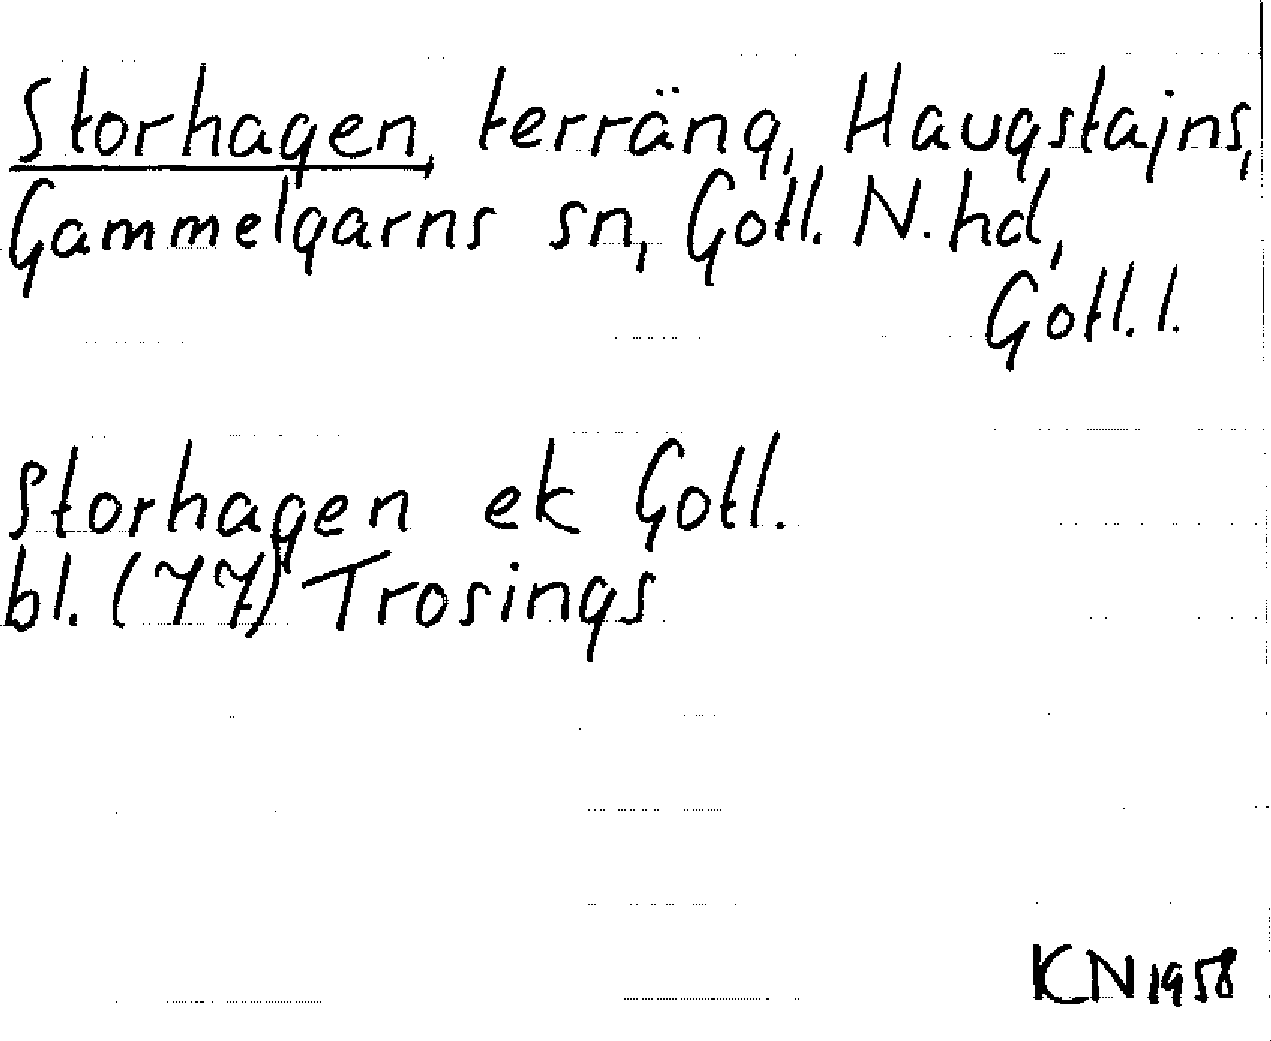 Storhagen, terräng, Haugstajns,
Gammelgarns sn, Gotl. N. hd,
Gotl. l.
Storhagen ek Gotl.
bl. (77) Trosings
KN 1958